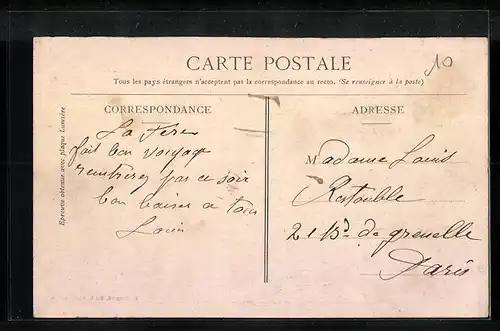 10
CARTE POSTALE
Tous les pays étrangers n'acceptent pas la correspondance au recto. (Se renseigner à la poste)
CORRESPONDANCE
La Fère
fait bon voyage
rentrerez pas ce soir
bon baiser à tous
Louis
Epreuve obtenue avec plaque Lumière.
ADRESSE
Madame Louis
Restouble
21 Bd de grenelle
Paris